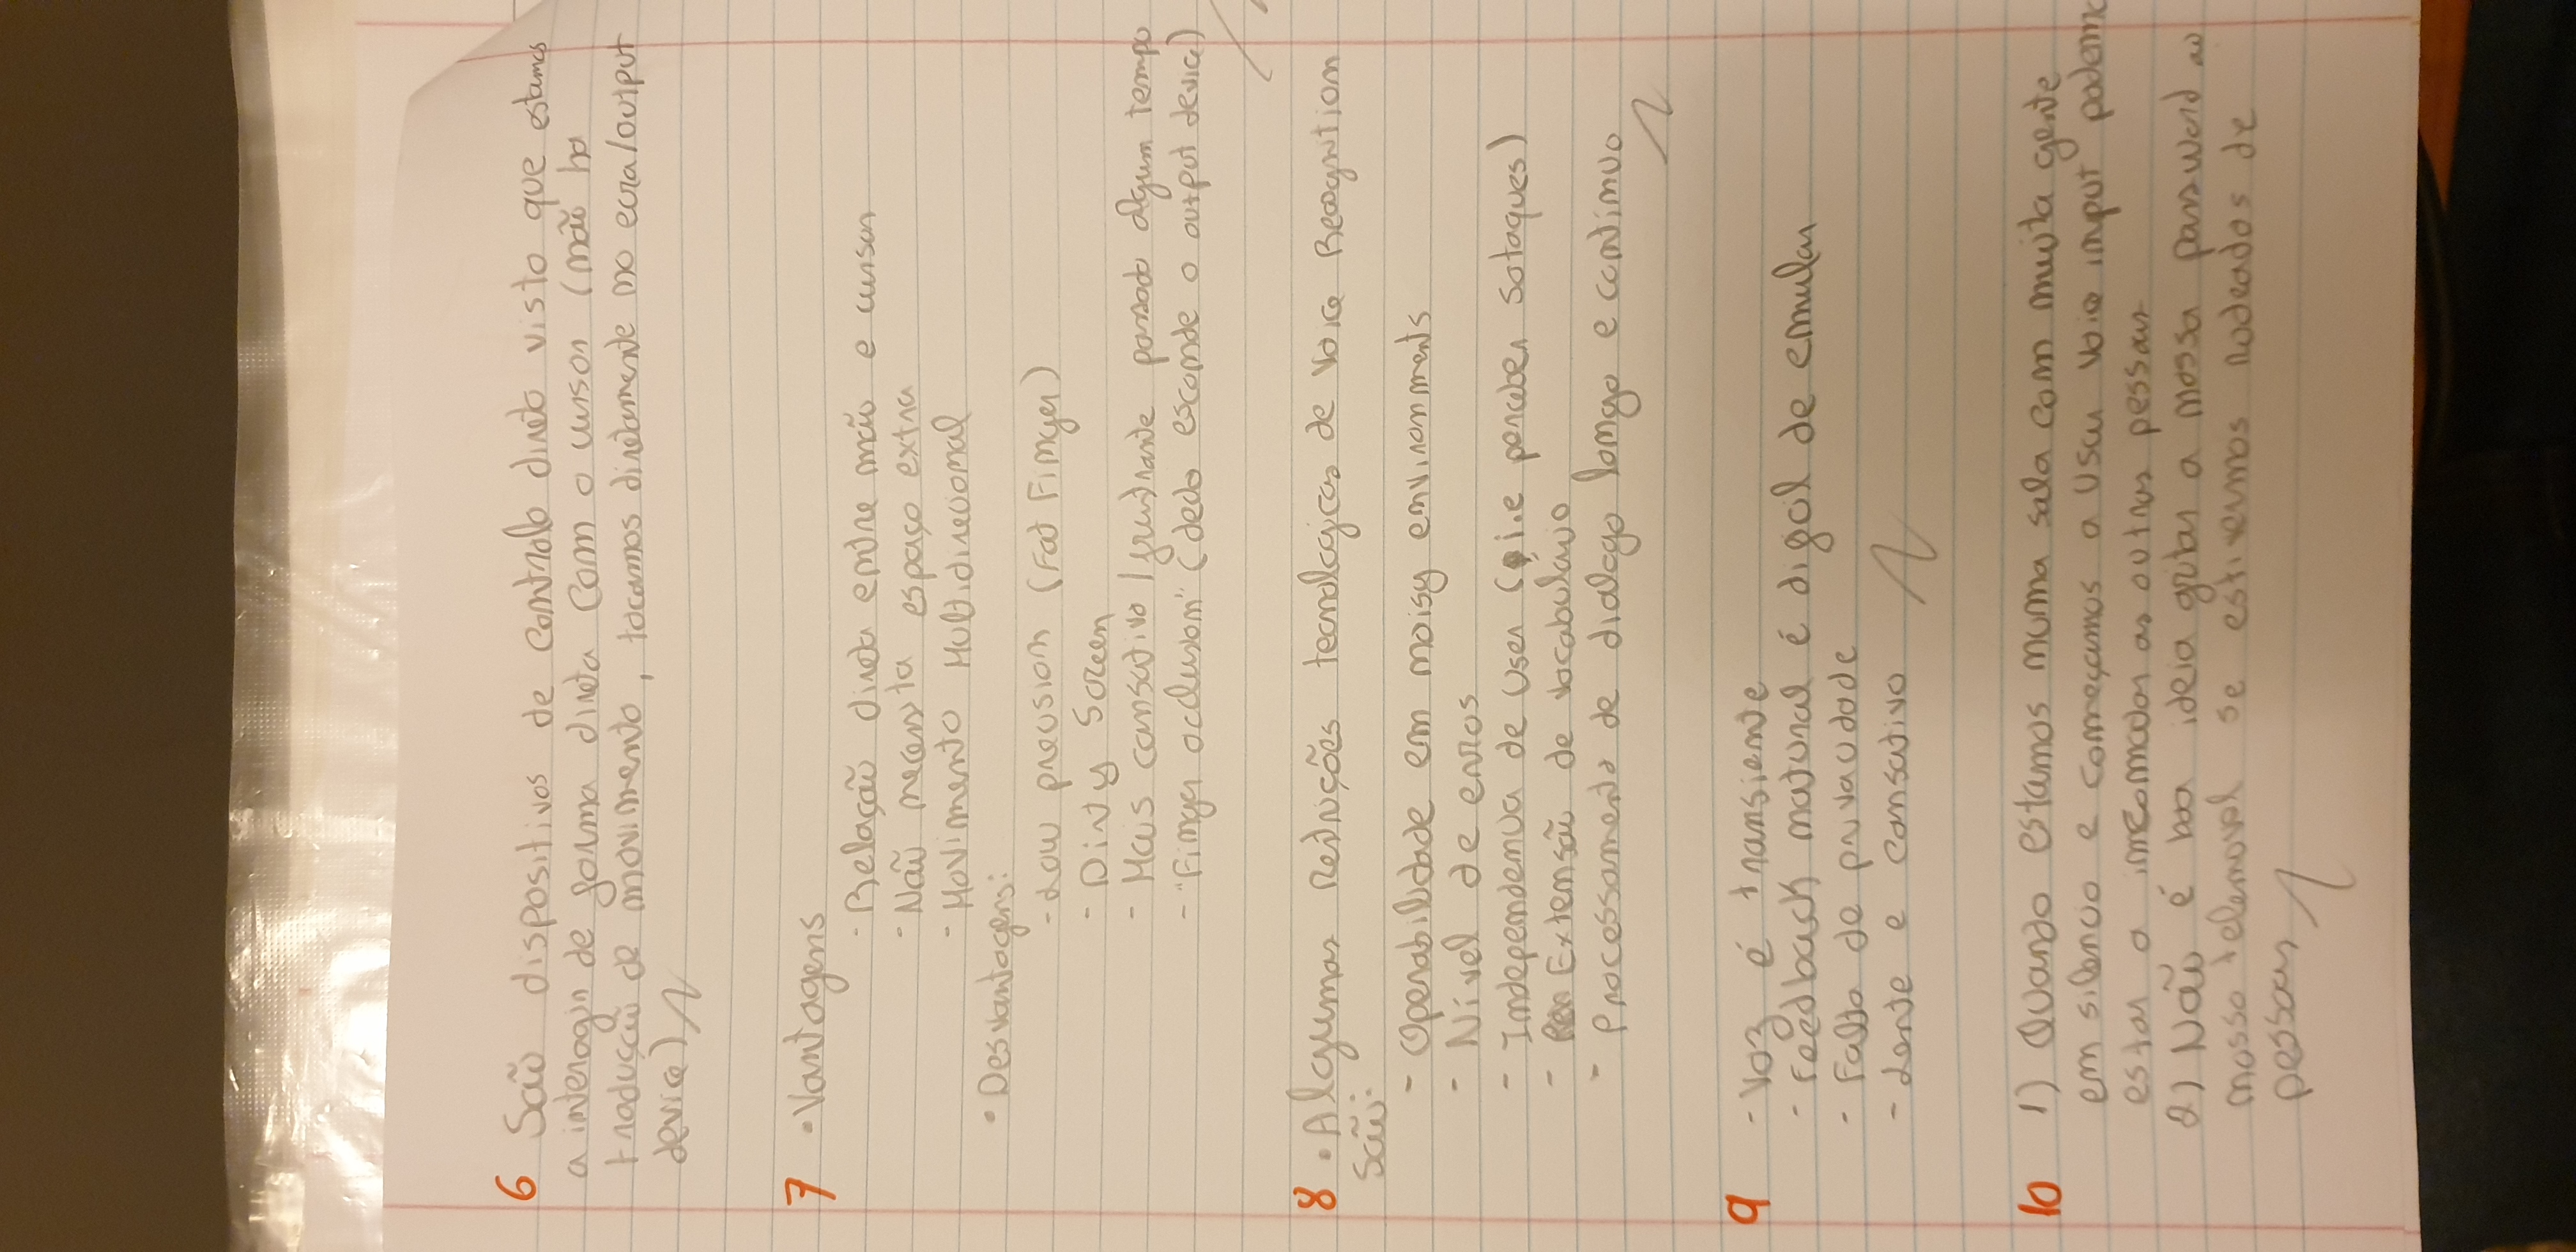 6 São dispositivos de controlo direto visto que estamos
a interagir de forma direta com o cursor (não há
tradução de movimento, tocamos diretamente no ecra/output
device)
7 • Vantagens
- Relação direta entre mão e cursor
- Não necessita espaço extra
- Movimento Multidirecional
• Desvantagens:
- Low precision (Fat Finger)
- Dirty Screen
- Mais cansativo / frustrante passado algum tempo
- "Finger occlusion" (dedo esconde o output device)
8 • Algumas Restrições tecnologicas de Voice Recognition
São:
- Operabilidade em noisy environments
- Nível de erros
- Independencia de User (i.e perceber sotaques)
- Extensão de vocabulário
- Processamento de dialogo longo e continuo
9 - Voz é transiente
- Feedback natural é dificil de emular
- Falta de privacidade
- Lente e cansativo
10 1) Quando estamos numa sala com muita gente
em silencio e começamos a usar voice input podemo
estar a incomodar as outras pessoas
2) Não é boa ideia gritar a nossa password ao
nosso telemovel se estivermos rodeados de
pessoas